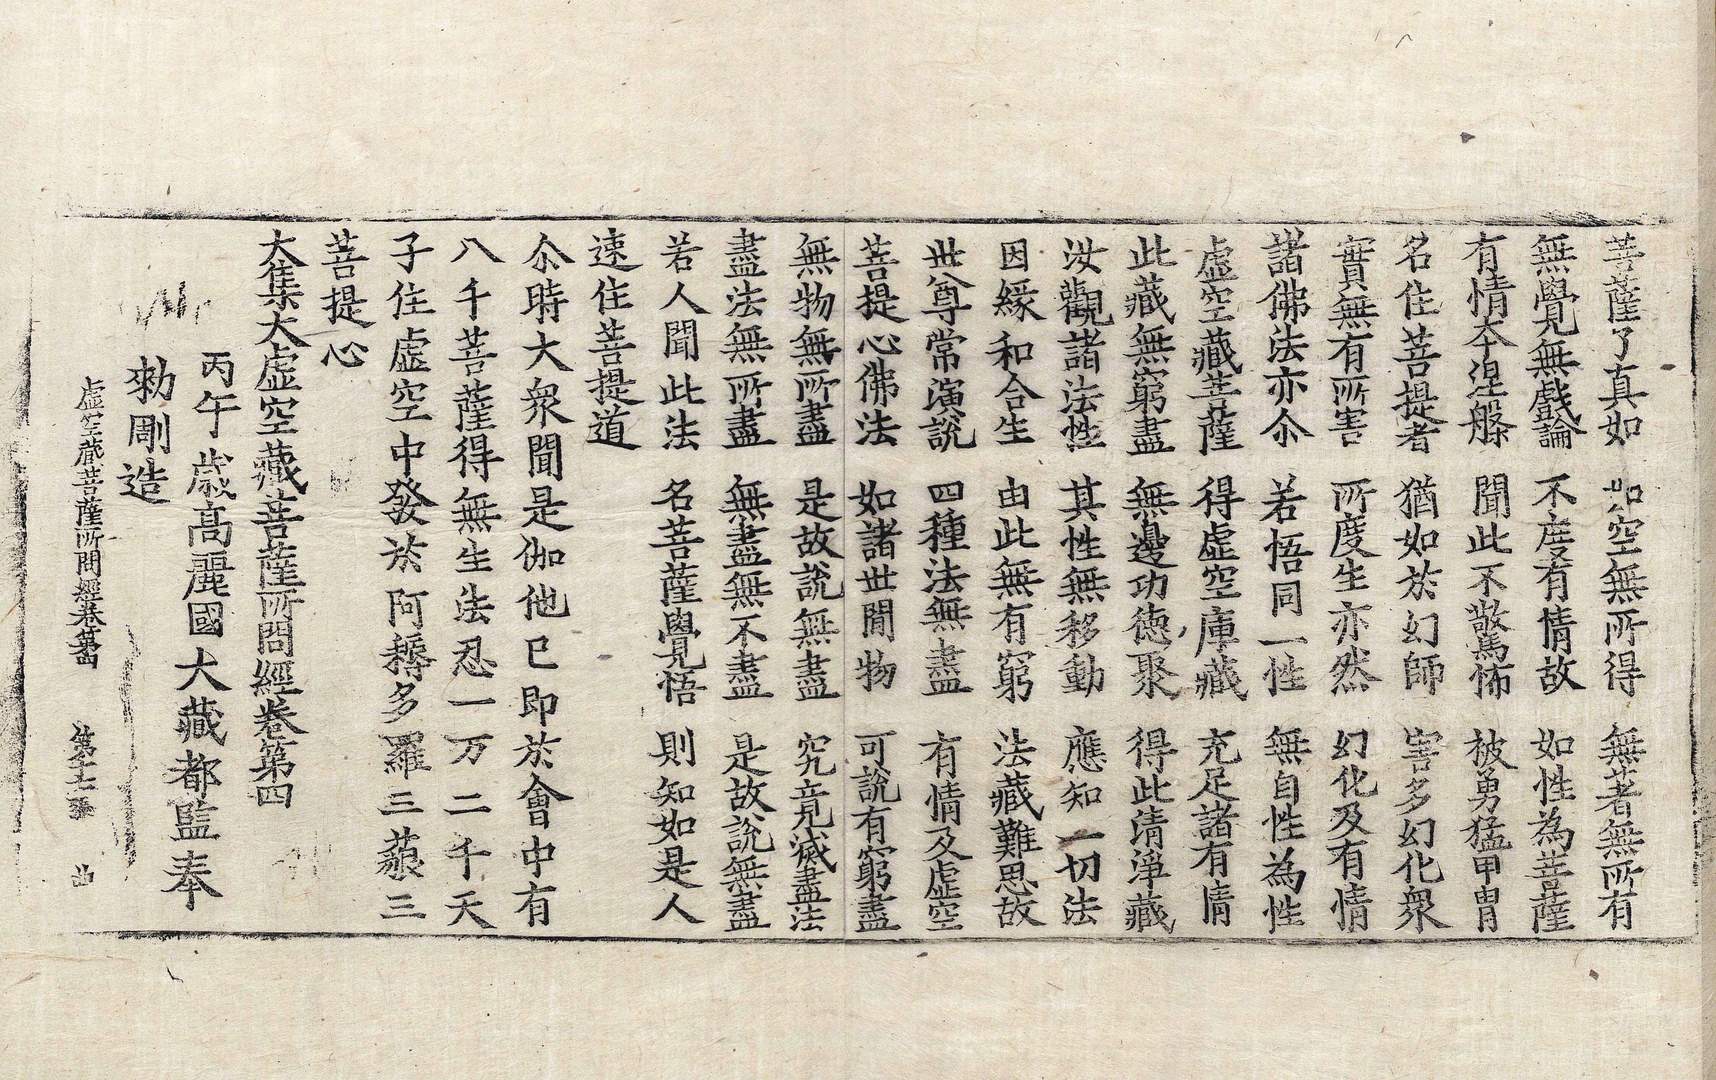 菩薩了真如 如空無所得 無著無所有
無覺無戲論 不度有情故 如性為菩薩
有情本涅槃 聞此不驚怖 被勇猛甲冑
名住菩提者 猶如於幻師 害多幻化衆
實無有所害 所度生亦然 幻化及有情
諸佛法亦尒 若悟同一性 無自性為性
虛空藏菩薩 得虛空庫藏 充足諸有情
此藏無窮盡 無邊功德聚 得此清淨藏
汝觀諸法性 其性無移動 應知一切法
因緣和合生 由此無有窮 法藏難思故
世尊常演說 四種法無盡 有情及虛空
菩提心佛法 如諸世間物 可說有窮盡
無物無所盡 是故說無盡 究竟滅盡法
盡法無所盡 無盡無不盡 是故說無盡
若人聞此法 名菩薩覺悟 則知如是人
速住菩提道
尒時大衆聞是伽他已即於會中有
八千菩薩得無生法忍一万二千天
子住虛空中發於阿耨多羅三藐三
菩提心
大集大虛空藏菩薩所問經卷第四
丙午歲高麗國大藏都監奉
勑彫造
虛空藏菩薩所問經卷第四 第十七張